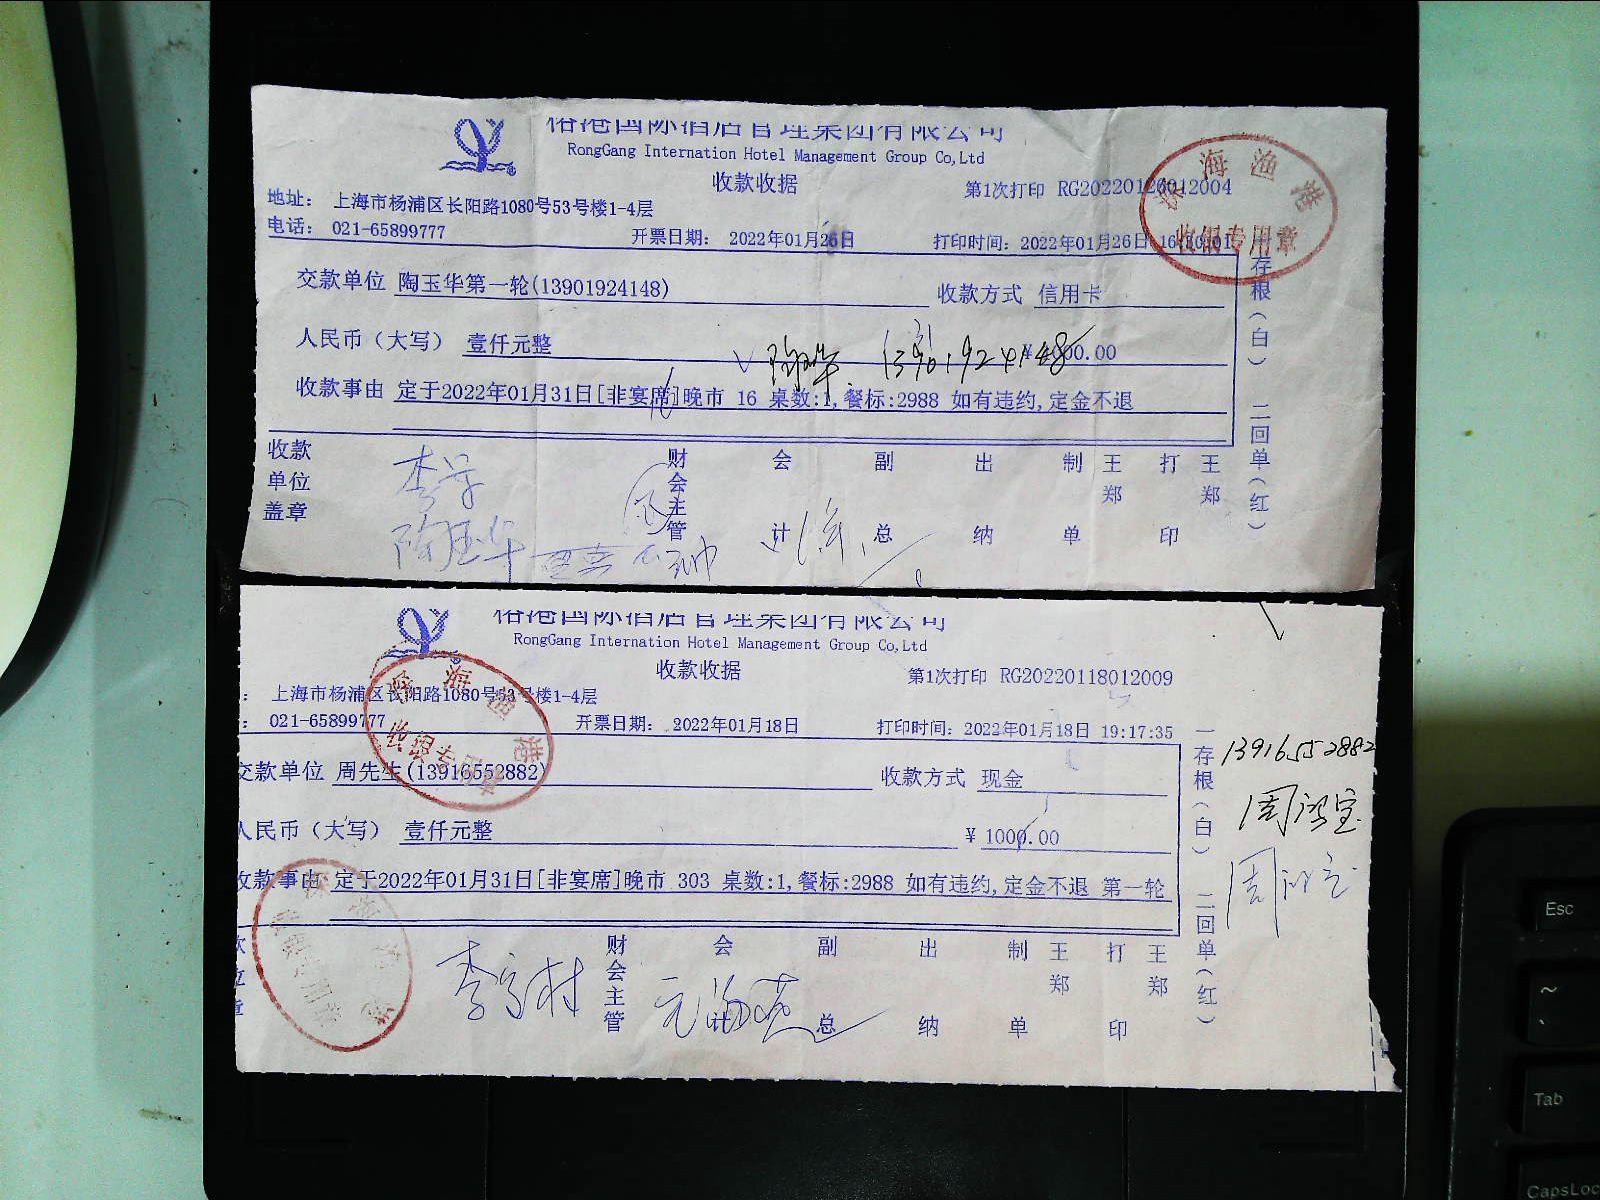 裕港国际酒店管理集团有限公司
RongGang Internation Hotel Management Group Co,Ltd
收款收据
第1次打印 RG20220126012004
地址： 上海市杨浦区长阳路1080号53号楼1-4层
电话： 021-65899777
开票日期： 2022年01月26日
打印时间：2022年01月26日
深海渔港
收银专用章
交款单位 陶玉华第一轮(13901924148)
收款方式 信用卡
人民币（大写） 壹仟元整
¥ 1000.00
13901924148
收款事由 定于2022年01月31日[非宴席]晚市 16 桌数:1,餐标:2988 如有违约,定金不退
收款单位盖章
陶玉华
财会主管
会计
副总
出纳
制单
王郑
打印
王郑
一存根（白） 二回单（红）
裕港国际酒店管理集团有限公司
RongGang Internation Hotel Management Group Co,Ltd
收款收据
第1次打印 RG20220118012009
： 上海市杨浦区长阳路1080号53号楼1-4层
： 021-65899777
开票日期： 2022年01月18日
打印时间：2022年01月18日 19:17:35
深海渔港
收银专用章
交款单位 周先生(13916552882)
收款方式 现金
人民币（大写） 壹仟元整
¥ 1000.00
收款事由 定于2022年01月31日[非宴席]晚市 303 桌数:1,餐标:2988 如有违约,定金不退 第一轮
财会主管
会
副总
出纳
制单
王郑
打印
王郑
一存根（白） 二回单（红）
13916552882
Esc
~
Tab
CapsLoc